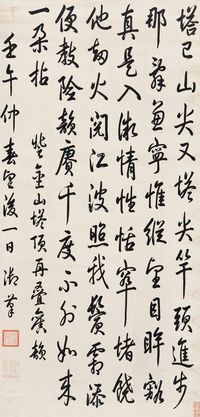 塔已山尖又塔尖竿頭進步
那辭兼寧惟縱望目眸豁
真是入微情性恬窣堵饒
他劫火閱江波照我鬢霜添
便教險韻賡千度不外如來
一朵拈 登金山塔頂再疊舊韻
壬午仲春望後一日御筆